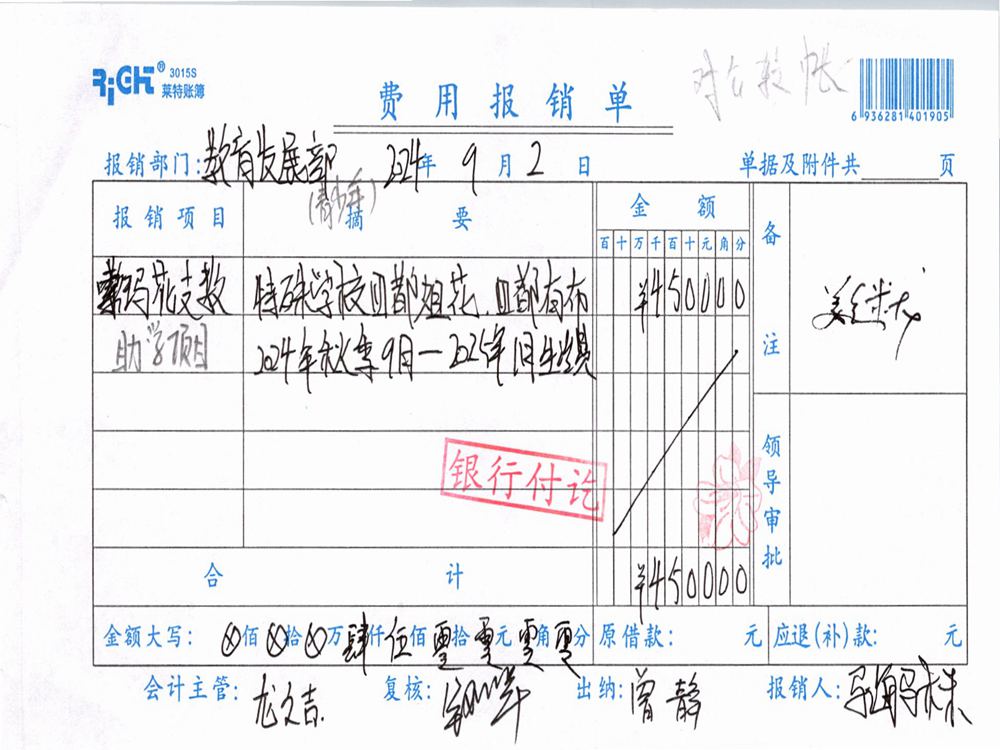 RiGHT® 3015S
莱特账簿
对公转帐
费用报销单
6 936281 401905
报销部门:教育发展部 2024年 9月2日 单据及附件共 页
(青少年)
报销项目 摘要 金额 备注
百十万千百十元角分
索玛花支教 特殊学校 ¥450000
助学项目 2024年秋季9月—2025年1月生活费
银行付讫
领导审批
合计 ¥450000
金额大写: ⊗佰⊗拾⊗万肆仟伍佰零拾零元零角零分 原借款: 元 应退(补)款: 元
会计主管:龙文吉 复核: 出纳:曾静 报销人: